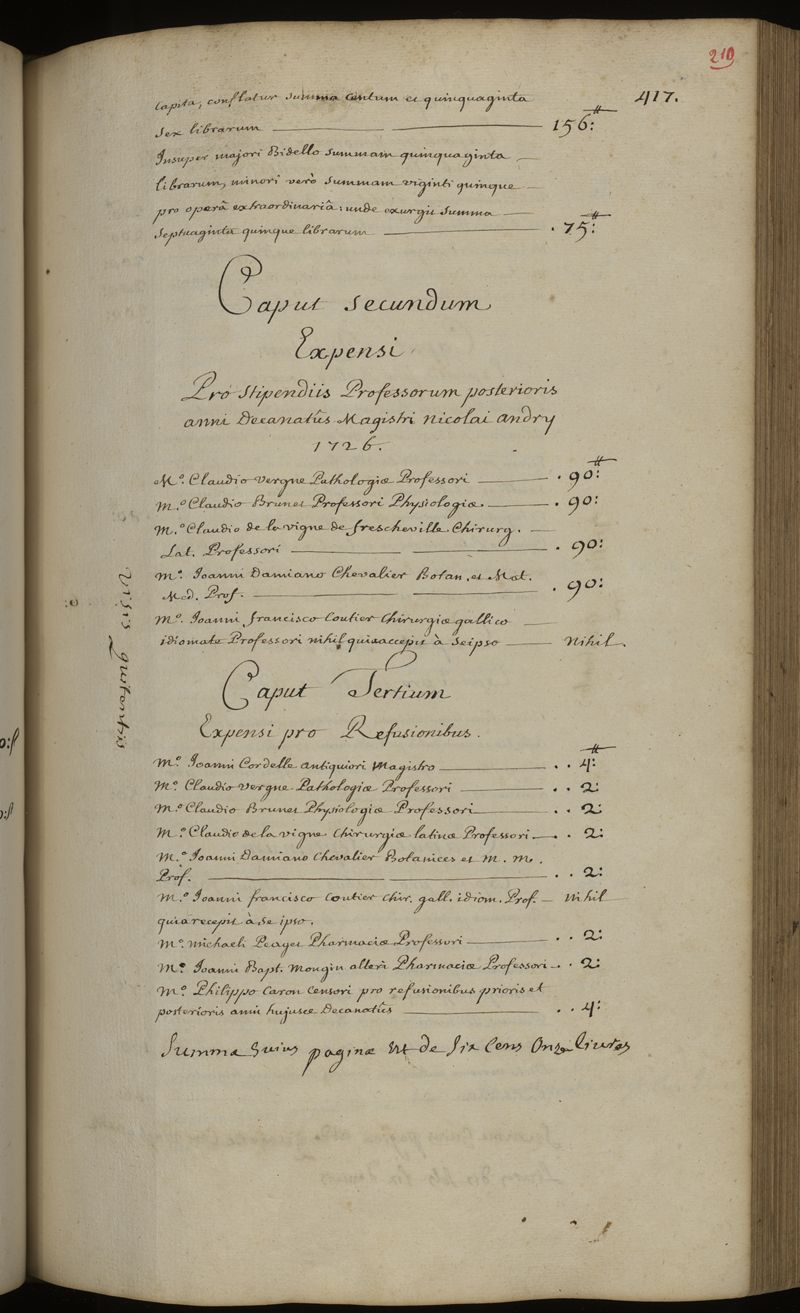 210
417.
capita, conflatur summa centum et quinquaginta
sex librarum 156:
Insuper majori Bidello summam quinquaginta
librarum, minori verò summam viginti quinque
pro operâ extraordinariâ; unde exurgit summa
septuaginta quinque librarum . 75:
Caput secundum
Expensi
Pro Stipendiis Professorum posterioris
anni Decanatûs Magistri nicolai andry
1726.
M.° Claudio vergne Pathologiæ Professori . 90:
M.° Claudio Brunet Professori Physiologiæ. . 90:
M.° Claudio de la vigne de frescheville Chirurg.
Lat. Professori . 90:
M.° Joanni Damiano Chevalier Botan. et Mat.
Med. Prof. . 90:
M.° Joanni francisco Coutier Chirurgiæ gallico
idiomate Professori nihil quia accepit à seipso nihil.
Caput Tertium
Expensi pro Refusionibus.
M.° Joanni Cordelle antiquiori Magistro . . 4:
M.° Claudio vergne Pathologiæ Professori . . 2:
M.° Claudio Brunet Physiologiæ Professori . . 2:
M.° Claudio de la vigne Chirurgiæ latinæ Professori . . 2:
M.° Joanni Damiano Chevalier Botanices et M. M.
Prof. . . 2:
M.° Joanni francisco Coutier Chir. gall. idiom. Prof. nihil
quia recepit à se ipso.
M.° michaeli Peaget Pharmaciæ Professori . . 2:
M.° Joanni Bapt. Mongin alteri Pharmaciæ Professori . . 2:
M.° Philippo Caron Censori pro refusionibus prioris et
posterioris anni hujusce Decanatûs . . 4:
Summa huius paginæ est de Six Cens Onze livres